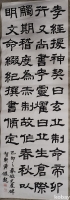 孝經援神挈曰玄丘制命帝卯
行又尚書考靈燿曰丘生倉際
觸期稽度為赤制故作春秋以
明文命綴紀撰書脩定